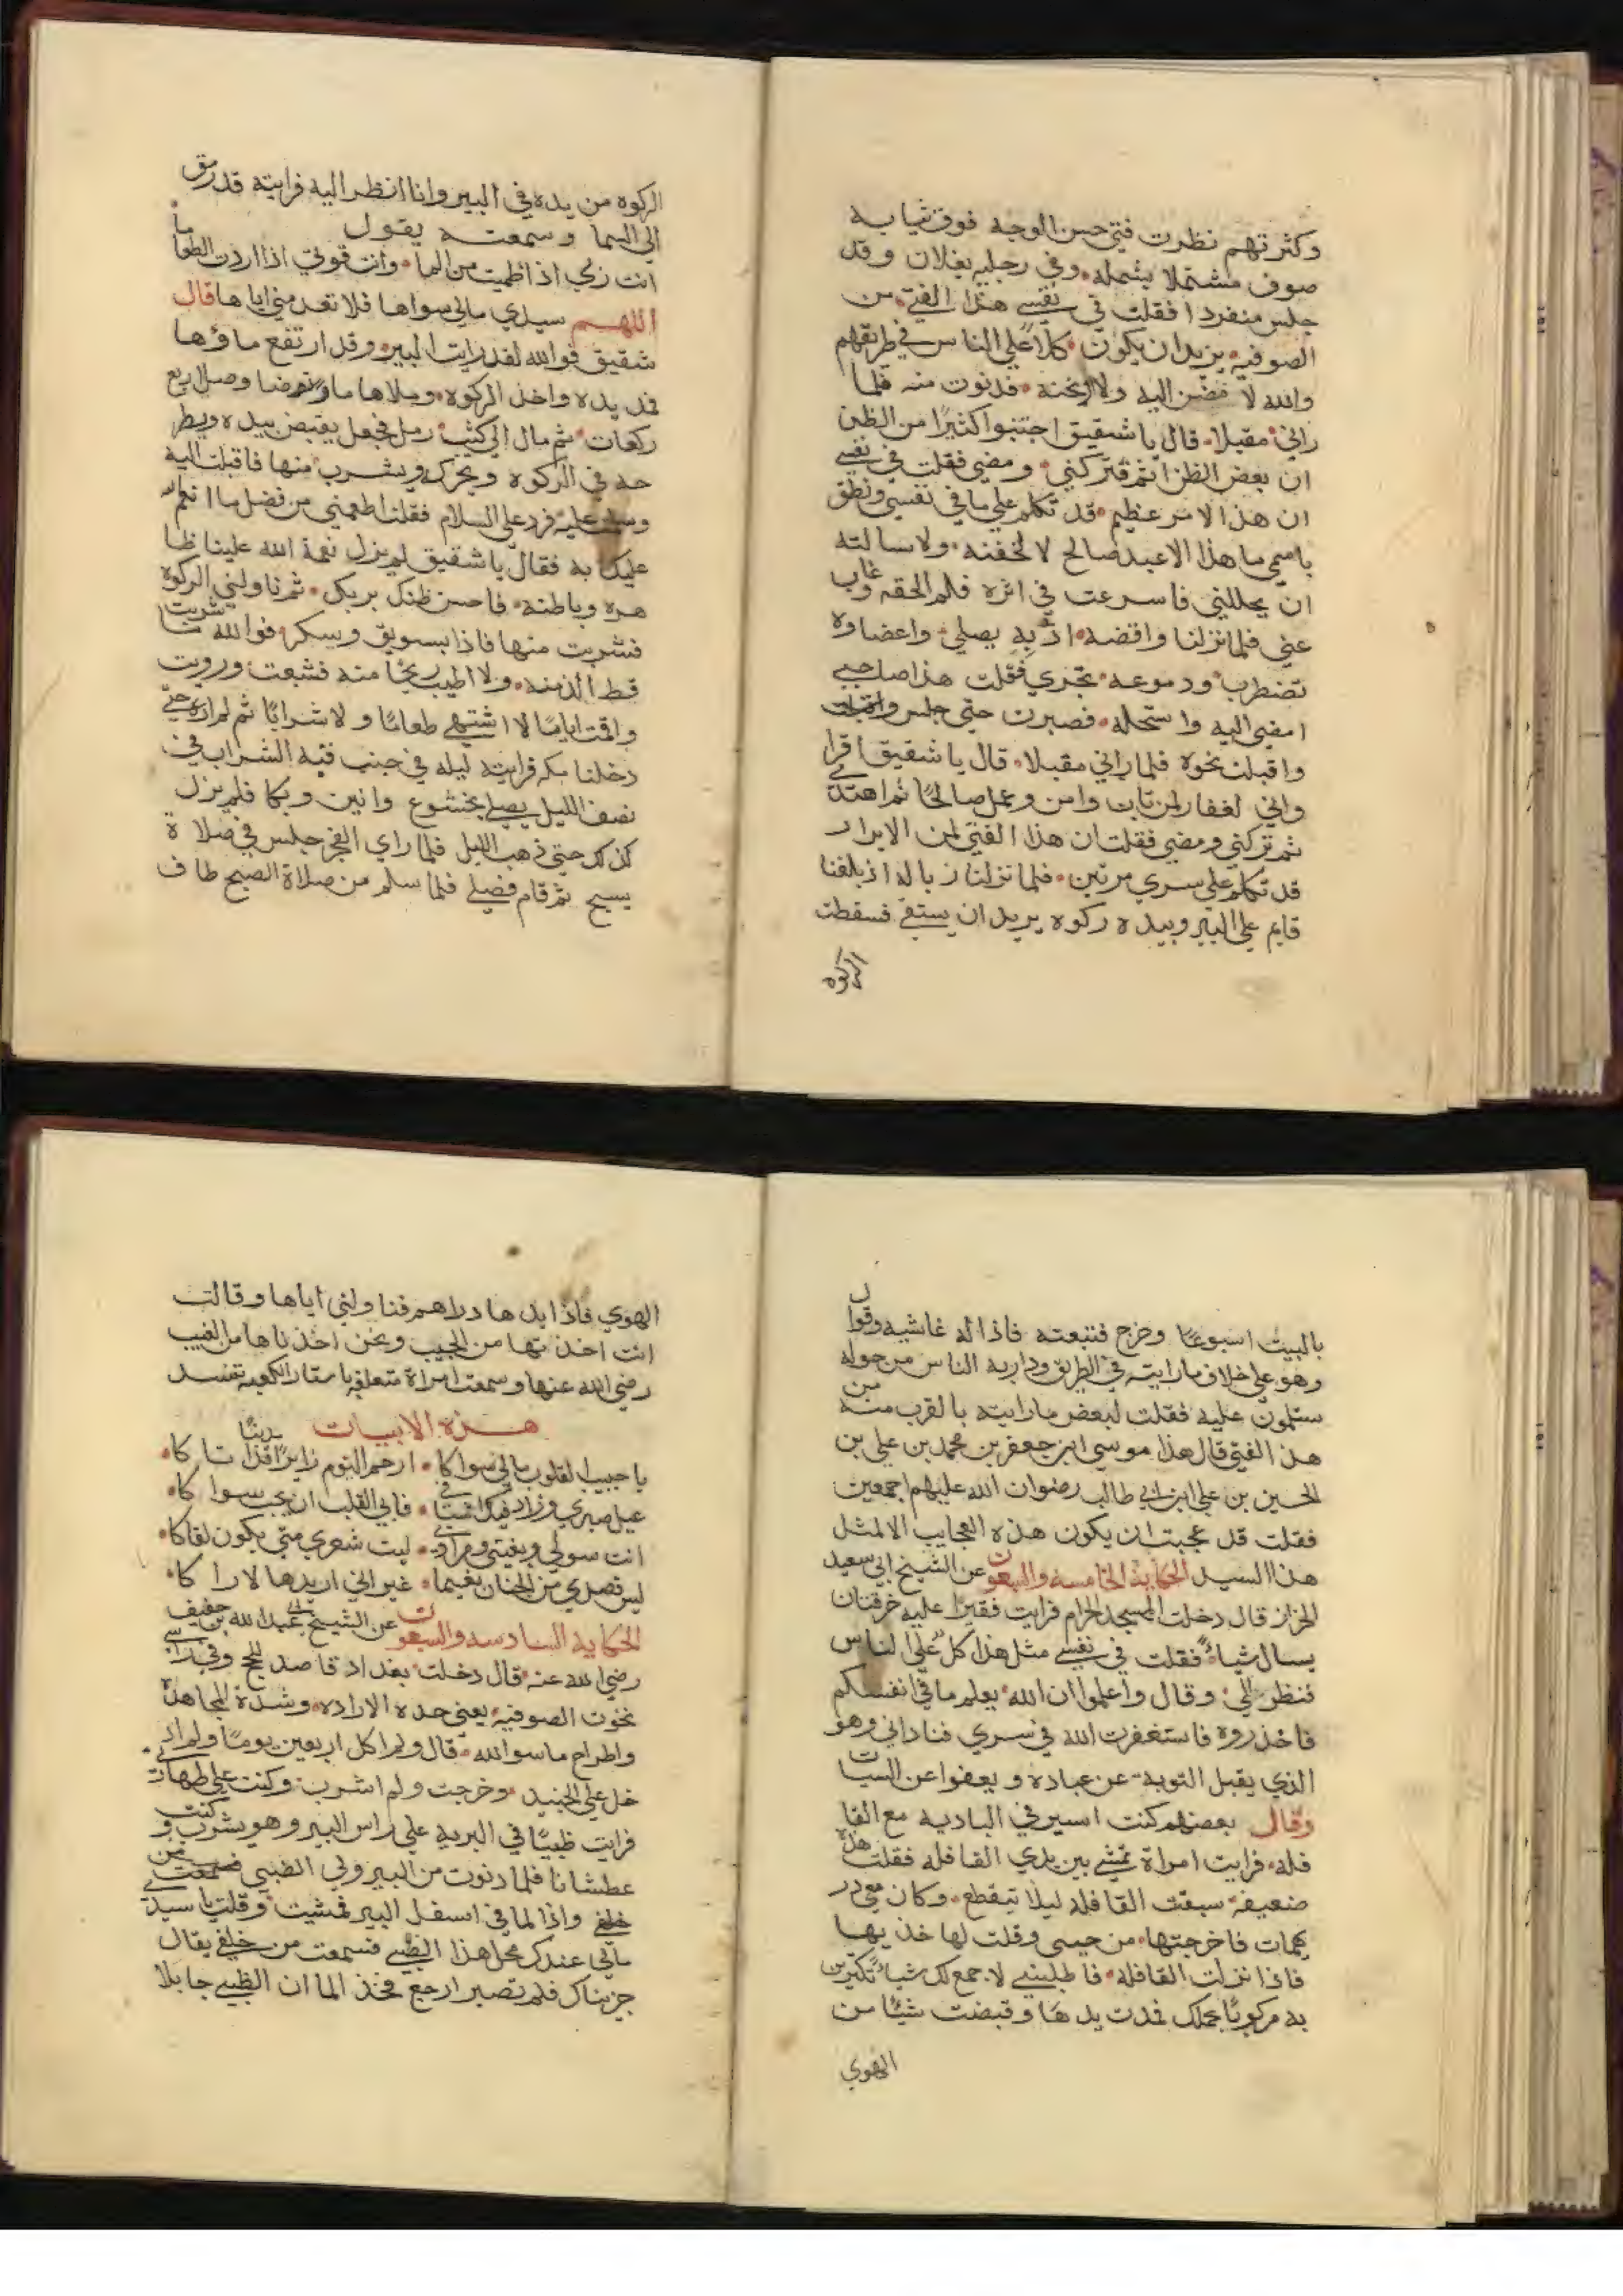 وكثرتهم نظرت فتي حسن الوجه فوق ثيابه
صوف مشتملا بشمله وفي رجليه نعلان وقد
جلس منفردا فقلت في نفسي هذا الفتي من
الصوفيه يريد ان يكون كلاً علي الناس في طريقهم
والله لا مضين اليه ولا وبخنه فدنوت منه فلما
راني مقبلا قال يا شقيق اجتنبوا كثيرًا من الظن
ان بعض الظن اثم ثم تركني ومضي فقلت في نفسي
ان هذا الامر عظيم قد تكلم علي ما في نفسي ونطق
باسمي ما هذا الا عبد صالح لالحقنه ولاسالته
ان يحللني فاسرعت في اثره فلم الحقه وغاب
عني فلما نزلنا واقضه اذ به يصلي واعضاوه
تضطرب ودموعه تجري فقلت هذا صاحبي
امضي اليه واستحله فصبرت حتي جلس واقبلت
واقبلت نحوه فلما راني مقبلا قال يا شقيق اقرا
واني لغفار لمن تاب وامن وعمل صالحًا ثم اهتدي
ثم تركني ومضي فقلت ان هذا الفتي لمن الابرار
قد تكلم علي سري مرتين فلما نزلنا زباله اذ بالفتا
قايم علي البير وبيده ركوه يريد ان يستقي فسقطت
الركوه
الركوه من يده في البير وانا انظر اليه فرايته قد رمق
الي السما وسمعته يقول
انت ربي اذا ظميت من الما وانت قوتي اذا اردت الطعاما
اللهم سيدي مالي سواها فلا تعدمني اياها قال
شقيق فوالله لقد رايت البير وقد ارتفع ماؤها
فمد يده واخذ الركوه وملاها ما وتوضا وصلا اربع
ركعات ثم مال الي كثيب رمل فجعل يقبض بيده ويطر
حه في الركوه ويحركه ويشرب منها فاقبلت اليه
وسلمت عليه فرد علي السلام فقلت اطعمني من فضل ما انعم الله
عليك به فقال يا شقيق لم يزل نعمة الله علينا ظا
هره وباطنه فاحسن ظنك بربك ثم ناولني الركوه
فشربت منها فاذا بسويق وسكر فوالله ما شربت
قط الذ منه ولا اطيب ريحًا منه فشبعت ورويت
واقمت ايامًا لا اشتهي طعامًا ولا شرابًا ثم لم اره حتي
دخلنا مكه فرايته ليله في جنب قبه الشراب في
نصف الليل يصلي بخشوع وانين وبكا فلم يزل
كذلك حتي ذهب الليل فلما راي الفجر جلس في صلا ة
يسبح ثم قام فصلي فلما سلم من صلاة الصبح طاف
بالبيت اسبوعًا وخرج فتبعته فاذا له غاشيه وقوال
وهو علي خلاف ما رايته في الطريق ودار به الناس من حوله
سسلمون عليه فقلت لبعض ما رايته بالقرب منه من
هذا الفتي قال هذا موسي ابن جعفر بن محمد بن علي بن
الحسين بن علي ابن ابي طالب رضوان الله عليهم اجمعين
فقلت قد عجبت ان يكون هذه العجايب الا لمثل
هذا السيد الحكاية الخامسه والسبعون عن الشيخ ابي سعيد
الخراز قال دخلت المسجد الحرام فرايت فقيرًا عليه خرقتان
يسال شياءً فقلت في نفسي مثل هذا كلٌ علي الناس
فنظر الي وقال واعلموا ان الله يعلم ما في انفسكم
فاحذروه فاستغفرت الله في سري فناداني وهو
الذي يقبل التوبه عن عباده ويعفوا عن السيات
وقال بعضهم كنت اسير في الباديه مع القا
فله فرايت امراة تمشي بين يدي القافله فقلت هذه
ضعيفة سبقت القافله ليلا تنقطع وكان معي در
يهمات فاخرجتها من جيبي وقلت لها خذيها
فاذا نزلت القافله فاطلبيني لاجمع لك شياءً تكترين
به مركوبًا يحملك فمدت يدها وقبضت شيًا من
الهوي
الهوي فاذا بيدها دراهم فناولني اياها وقالت
انت اخذتها من الجيب ونحن اخذناها من الغيب
رضي الله عنها وسمعت امراة متعلقه باستار الكعبه تنشد
هذه الابيات
يا حبيب القلوب مالي سواكا ارحم اليوم زايرًا قد اتاكا
عيل صبري وزاد فيك اشتيا في فابي القلب ان يحب سواكا
انت سولي وبغيتي ومرادي ليت شعري متي يكون لقاكا
ليس قصدي من الجنان نعيما غير اني اريدها لاراكا
الحكاية السادسه والسبعون عن الشيخ ابي عبد الله بن خفيف
رضي الله عنه قال دخلت بغداد قاصد للحج وفي راسي
نخوت الصوفيه يعني حده الاراده وشدة المجاهدة
واطراح ما سوا الله قال ولم اكل اربعين يومًا ولم اد
خل علي الجنيد وخرجت ولم اشرب وكنت علي طهارتي
فرايت ظبيًا في البرية علي راس البير وهو يشرب وكنت
عطشانا فلما دنوت من البير ولي الظبي فسمعت من
خلفي واذا لما في اسفل البير فمشيت وقلت يا سيدي
مالي عندك محل هذا الظبي فسمعت من خلفي يقال
جربناك فلم تصبر ارجع فخذ الما ان الظبي جا بلا